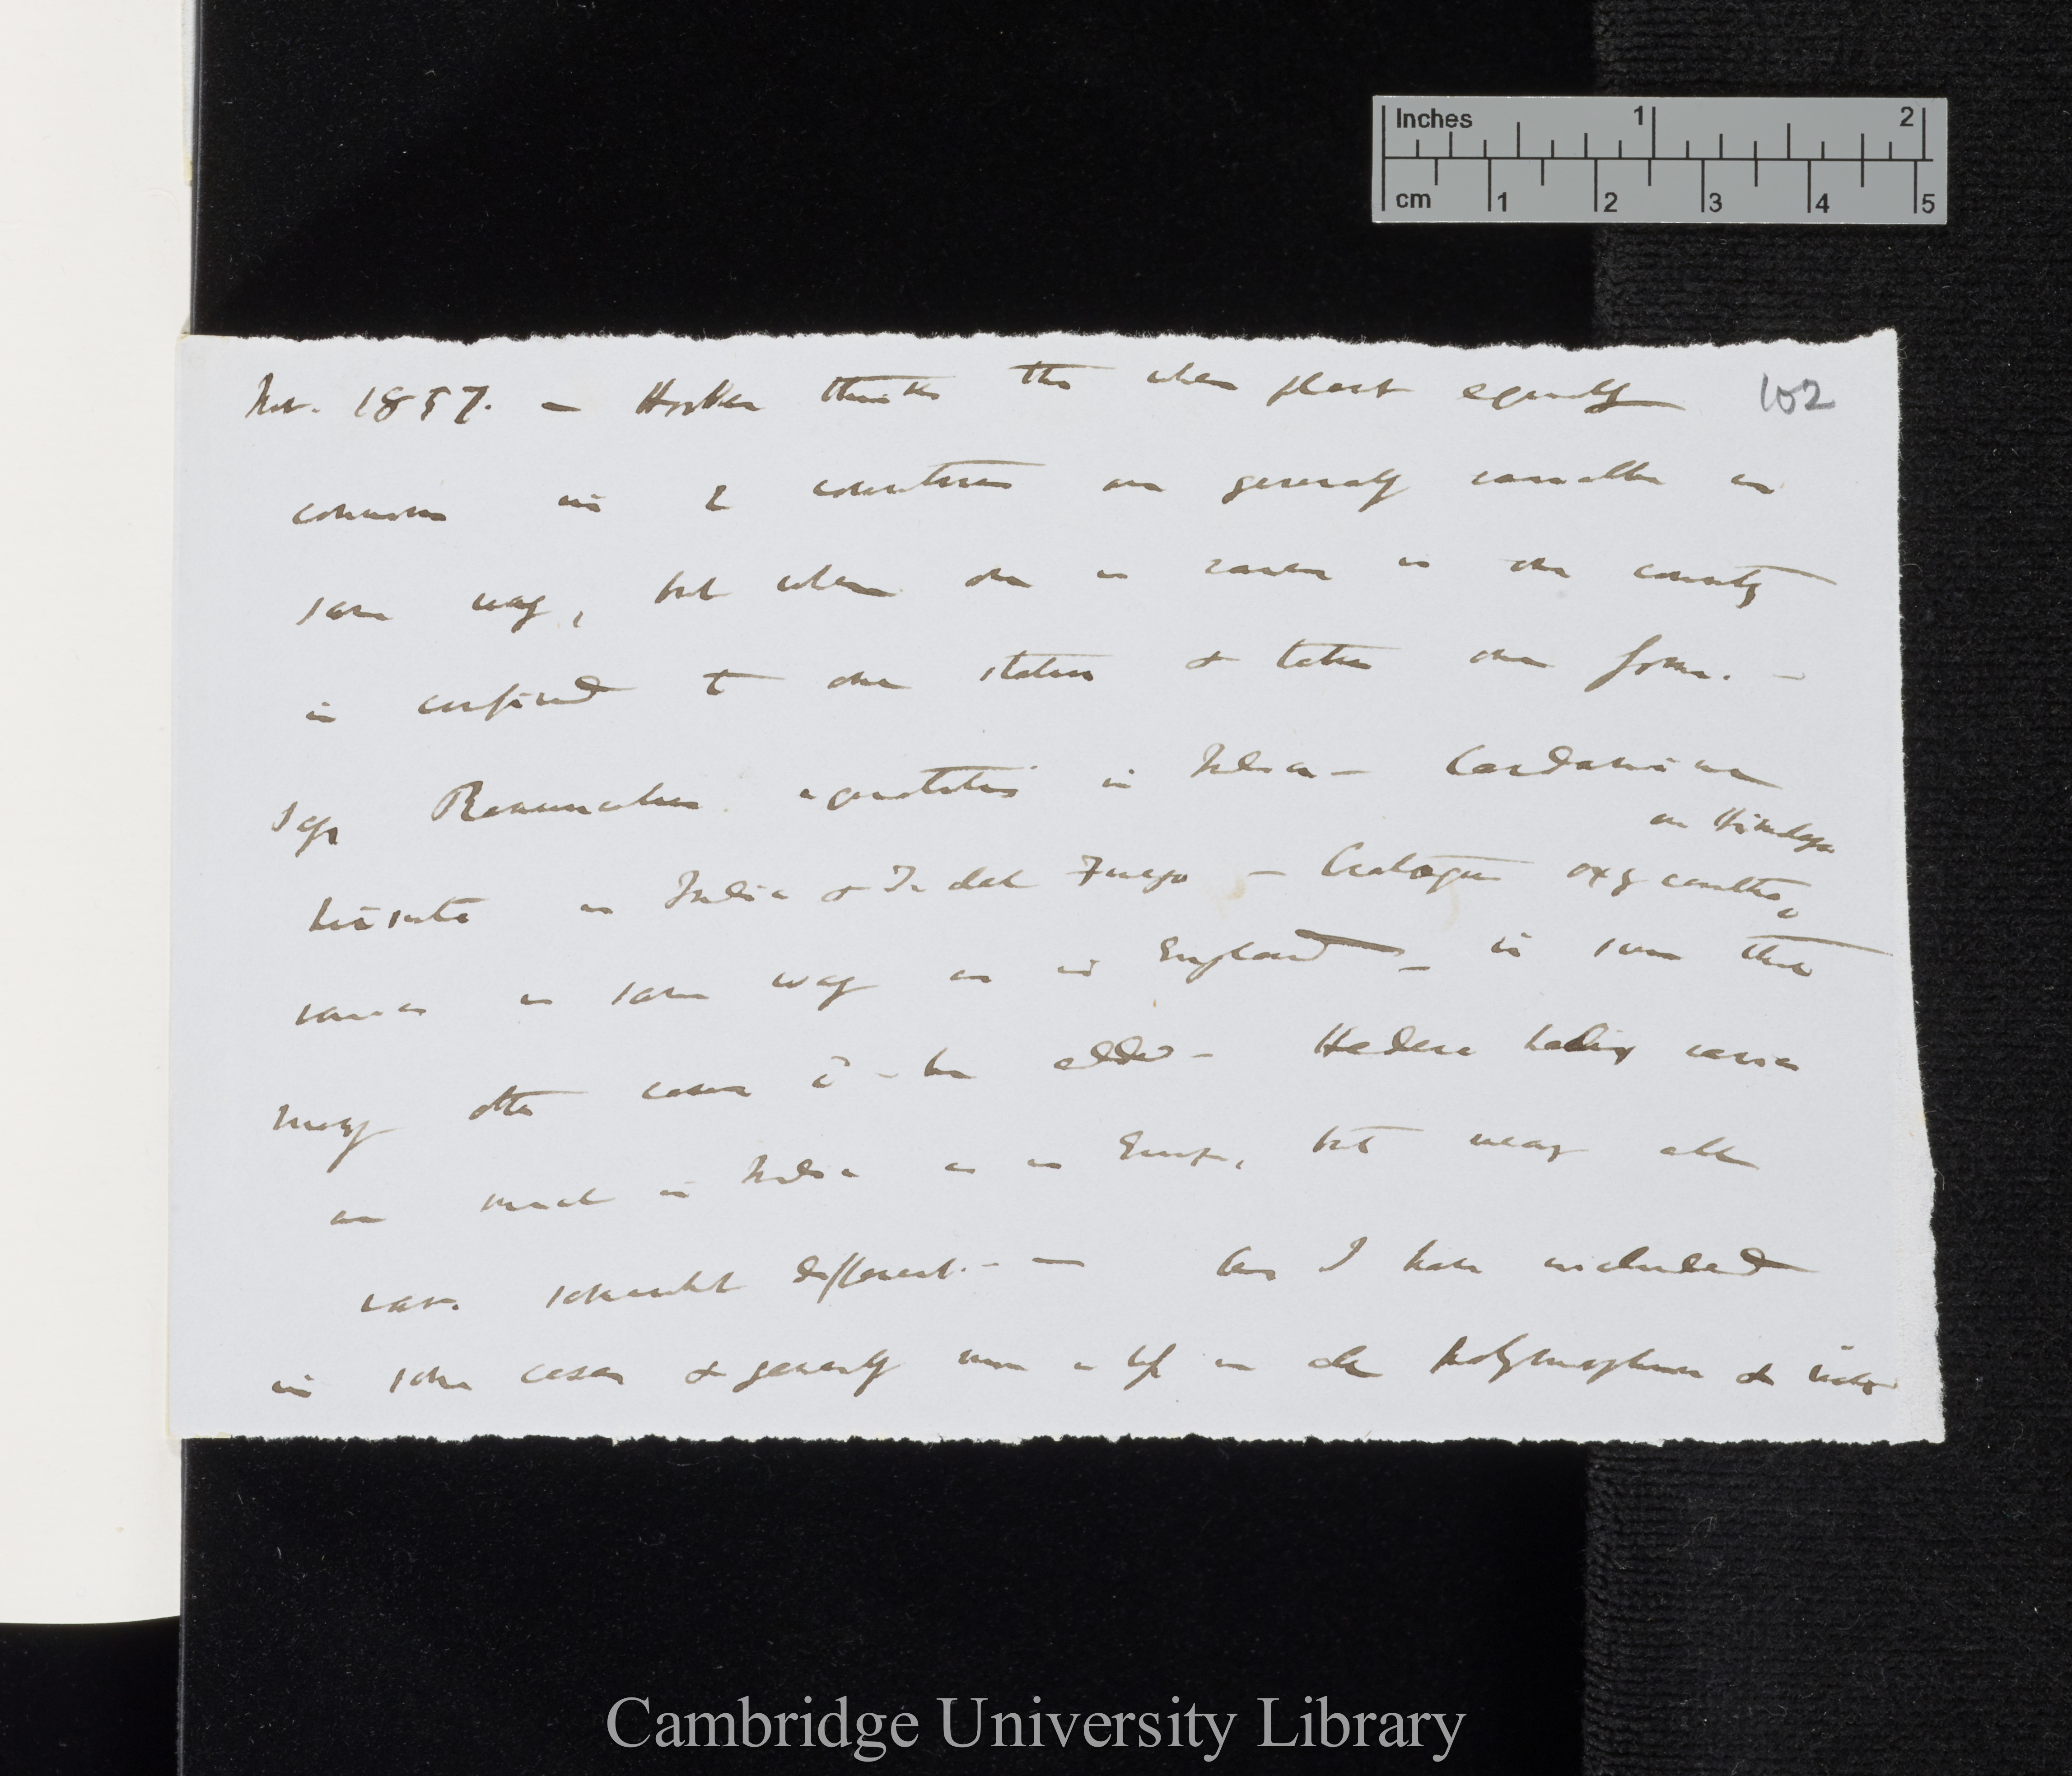 Inches 1 2
cm 1 2 3 4 5
Nov. 1857. — Hooker thinks that when plant equally 102
common in 2 countries are generally variable in
same way, but when one is rarer in one country
is confined to one station & takes one form. —
Says Ranunculus aquatilis in India — Cardamine
on Himalaya
hirsuta in India & T. del Fuego — Crataegus oxycantha
varies in same way as in England — is sure that
many other cases cd. be added — Hedera helix varies
as much in India as in Europe, but nearly all
vars. somewhat different. — — Can I have included
in some cases & generally
Cambridge University Library